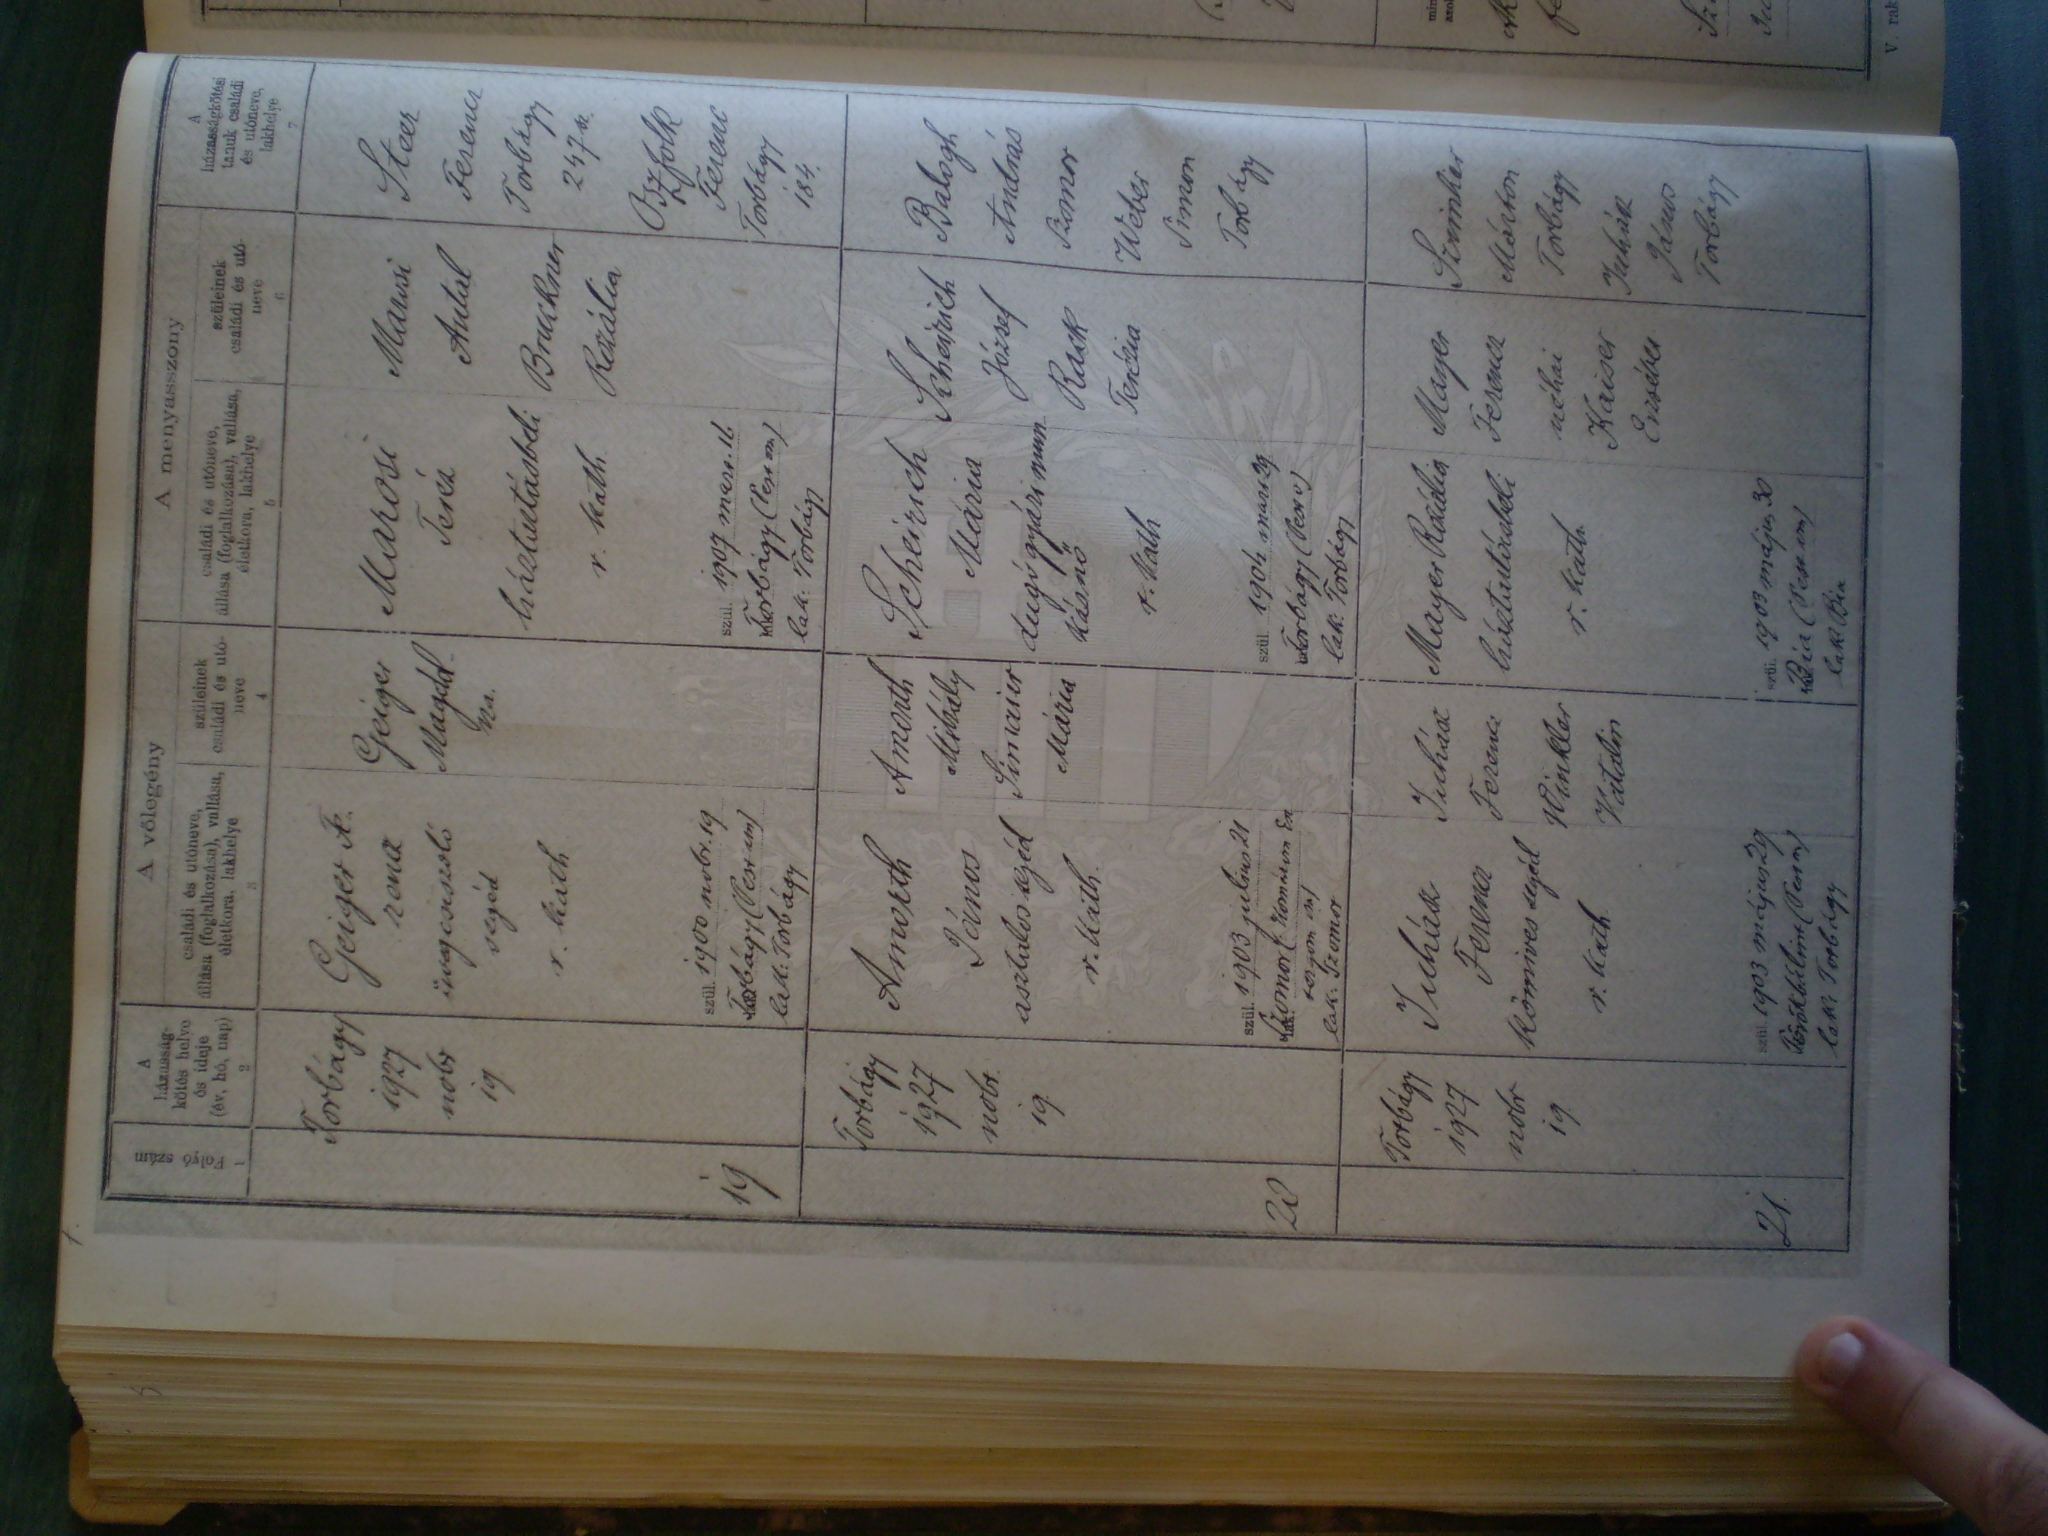 A vőlegény
A menyasszony
Folyó
szám
1
A
házasság-
kötés helye
és ideje
(év, hó, nap)
2
családi és utóneve,
állása (foglalkozása), vallása,
életkora, lakhelye
3
szüleinek
családi és utó-
neve
4
családi és utóneve,
állása (foglalkozása), vallása,
életkora, lakhelye
5
szüleinek
családi és utó-
neve
6
A
házasságkötési
tanuk családi
és utóneve,
lakhelye
7
19
Torbágy
1927
nobr
19
Geiger Fe-
renc
üvegcsiszoló
segéd
r. kath
szül. 1900 nobr. 19
Torbágy (Pest vm)
lak: Torbágy
Geiger
Magdol-
na.
Marosi
Teréz
háztartásbeli
r. kath.
szül. 1907 márc. 16
Torbágy (Pest vm)
lak: Torbágy
Marosi
Antal
Bruckner
Rozália
Steer
Ferencz
Torbágy
247
Ferenc
Torbágy
184.
20
Torbágy
1927
nobr.
19
Amorth
János
asztalos segéd
r. kath.
szül. 1903 julius 21
Szomor (Komárom Esz
tergom vm)
lak: Szomor
Amorth
Mihály
Simaier
Mária
Scheirich
Mária
dugógyári mun
kásnő
r. kath
szül. 1904 márc 29
Torbágy (Pest v)
lak: Torbágy
Scheirich
József
Rack
Terézia
Balogh
András
Szomor
Weber
Simon
Torbágy
21.
Torbágy
1927
nobr
19
Juhász
Ferencz
kőmives segéd
r. kath
szül. 1903 május 29
Törökbálint (Pest m)
lak: Torbágy
Juhász
Ferenc
Winkler
Katalin
Mayer Rozália
háztartásbeli
r. kath
szül. 1903 május 30
Bia (Pest vm)
lak: Bia
Mayer
Ferencz
néhai
Kaiser
Erzsébet
Márton
Torbágy
Juhász
János
Torbágy